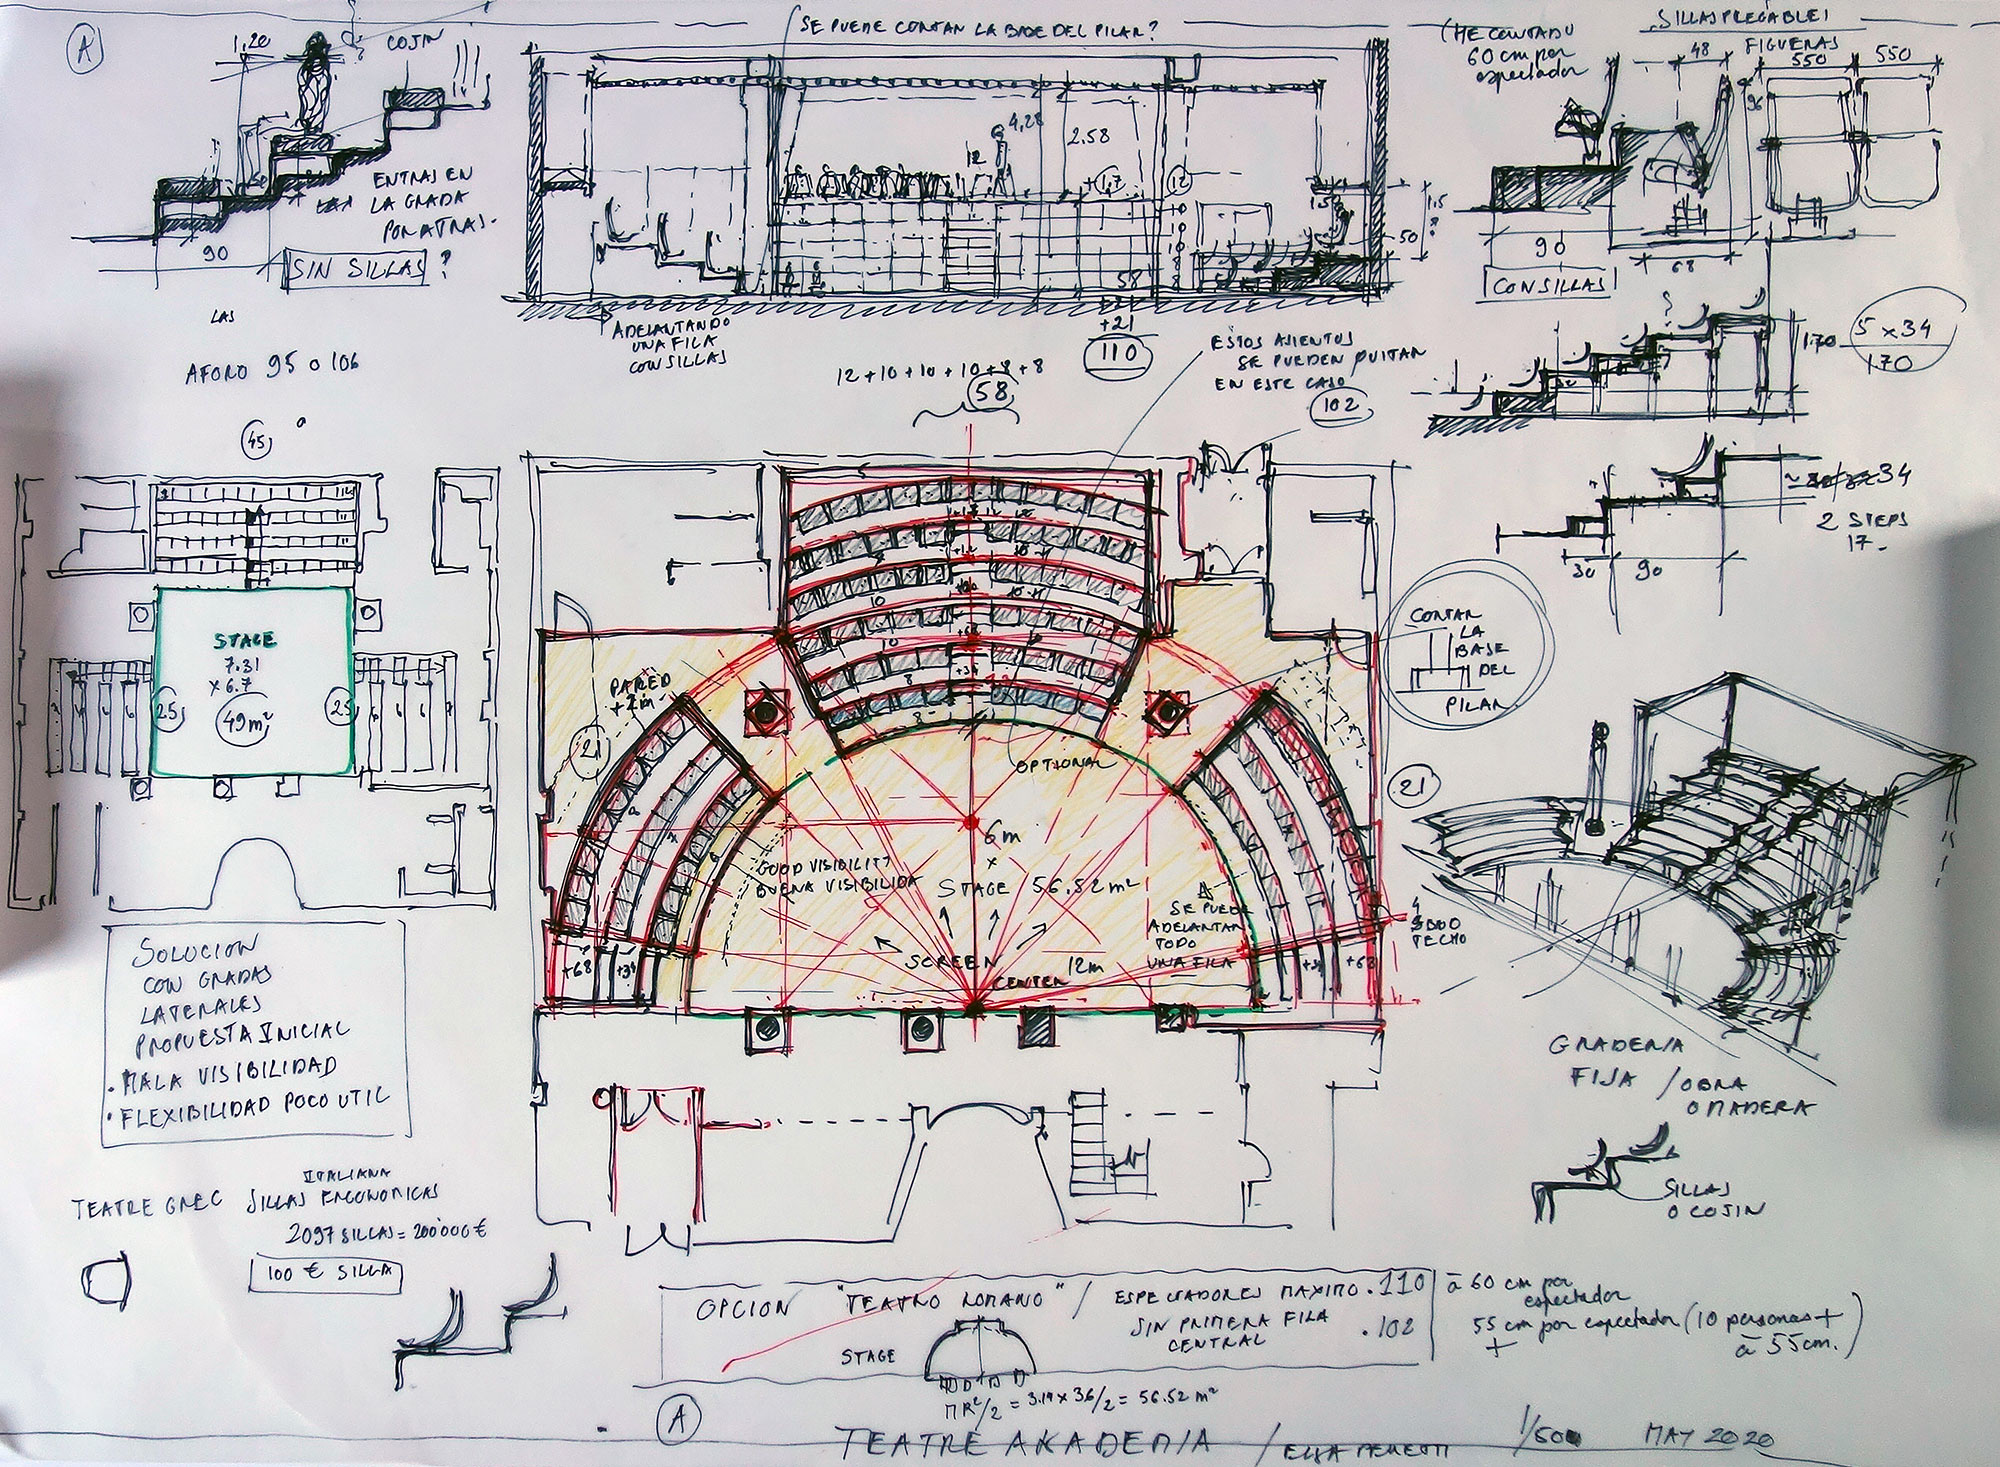 A
1.20
COJIN
ENTRAS EN
LA GRADA
POR ATRAS.
90
SIN SILLAS ?
SE PUEDE CORTAR LA BASE DEL PILAR?
4,28
2.58
12
+1,7
12
10
10
10
10
8
8
1.5
1.5
?
50
58
+21
+21
110
ADELANTANDO
UNA FILA
CON SILLAS
12+10+10+10+8+8
58
ESTOS ASIENTOS
SE PUEDEN QUITAR
EN ESTE CASO
102
(HE CONTADO
60 cm por
espectador
SILLAS PLEGABLES
FIGUERAS
550 550
48
96
90
68
CON SILLAS
1.70
5 x 34
170
34
2 STEPS
17.
30
90
LAS
AFORO 95 o 106
45
STAGE
7.31
x 6.7
49m²
25
25
SOLUCION
CON GRADAS
LATERALES
PROPUESTA INICIAL
. MALA VISIBILIDAD
. FLEXIBILIDAD POCO UTIL
PARED
+2m
21
OPTIONAL
6m
x
STAGE 56.52 m²
GOOD VISIBILITY
BUENA VISIBILIDA
SCREEN
12m
CENTER
SE PUEDE
ADELANTAR
TODO
UNA FILA
+68
+34
+34
+68
TECHO
CORTAR
LA
BASE
DEL
PILAR
21
GRADERIA
FIJA / OBRA
O MADERA
SILLAS
O COJIN
ITALIANA
TEATRE GREC SILLAS ERGONOMICAS
2097 SILLAS = 200'000 €
100 € SILLA
OPCION "TEATRO ROMANO" / ESPECTADORES MAXIMO .110
SIN PRIMERA FILA
CENTRAL .102
à 60 cm por
espectador
55 cm por espectador (10 personas +
+ à 55cm.)
STAGE
πR²/2 = 3.14 x 36/2 = 56.52 m²
A
TEATRE AKADEMIA /
1/500 MAY 2020